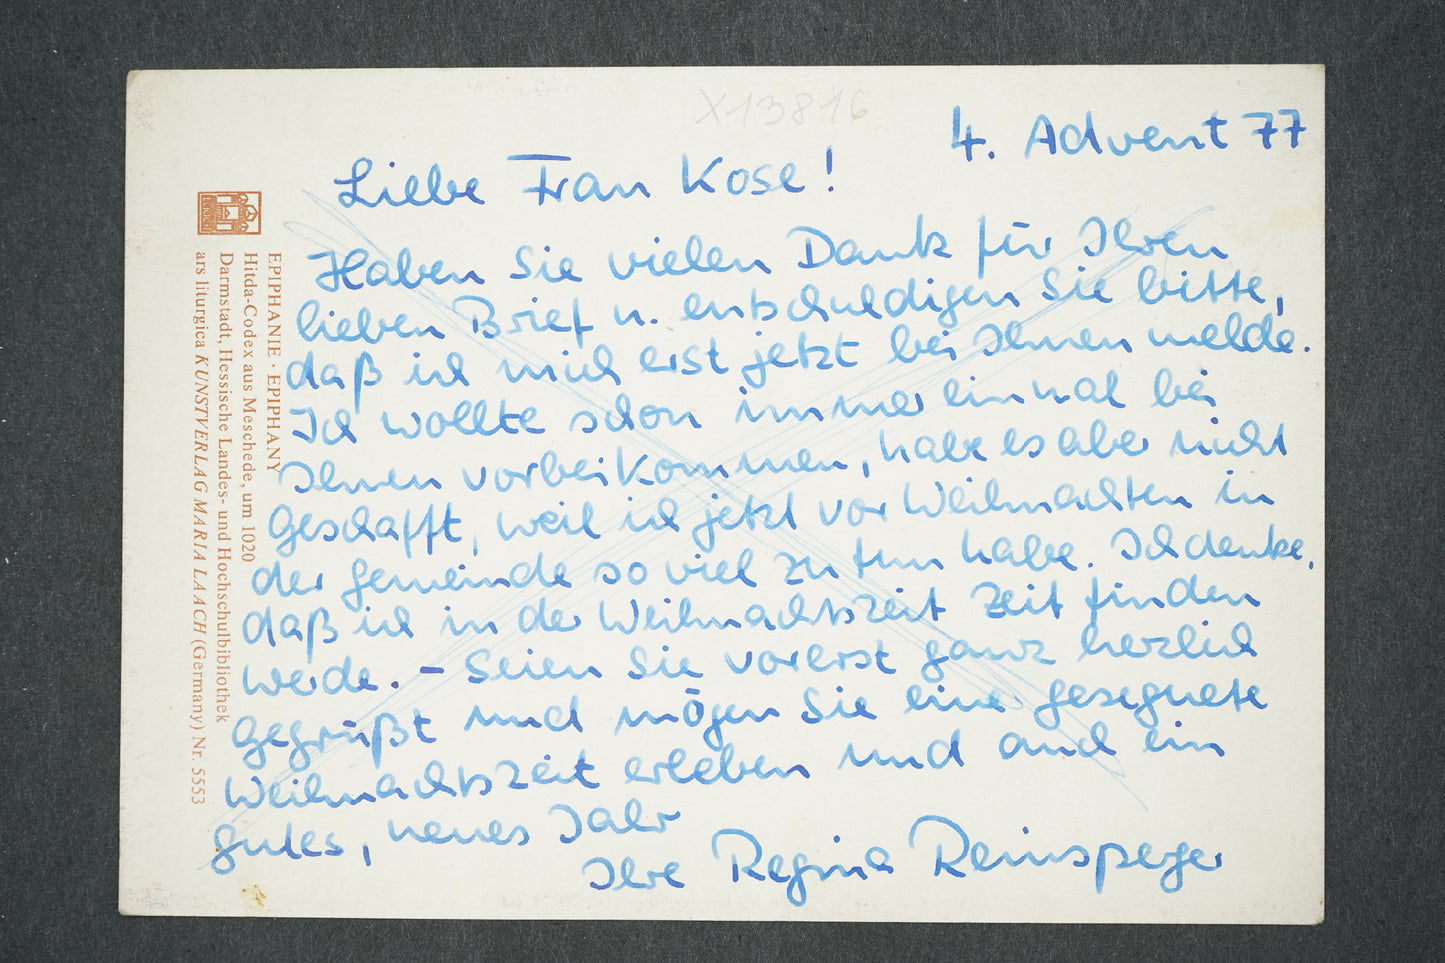 X13816
4. Advent 77
Liebe Frau Kose!
Haben Sie vielen Dank für Ihren
lieben Brief u. entschuldigen Sie bitte,
daß ich mich erst jetzt bei Ihnen melde.
Ich wollte schon immer einmal bei
Ihnen vorbeikommen, habe es aber nicht
geschafft, weil ich jetzt vor Weihnachten in
der Gemeinde so viel zu tun habe. Ich denke,
daß ich in der Weihnachtszeit Zeit finden
werde. – Seien Sie vorerst ganz herzlich
gegrüßt und mögen Sie eine gesegnete
Weihnachtszeit erleben und auch ein
gutes, neues Jahr
Ihre Regina Reinsperger
EPIPHANIE · EPIPHANY
Hitda-Codex aus Meschede, um 1020
Darmstadt, Hessische Landes- und Hochschulbibliothek
ars liturgica KUNSTVERLAG MARIA LAACH (Germany) Nr. 5553